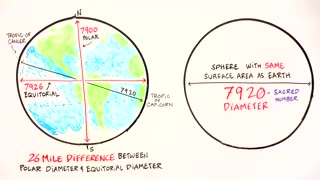 N
TROPIC OF
CANCER
7900
POLAR
7926
EQUITORIAL
7920
TROPIC
OF
CAPICORN
S
26 MILE DIFFERENCE BETWEEN
POLAR DIAMETER & EQUITORIAL DIAMETER
SPHERE WITH SAME
SURFACE AREA AS EARTH
7920 = SACRED
NUMBER
DIAMETER